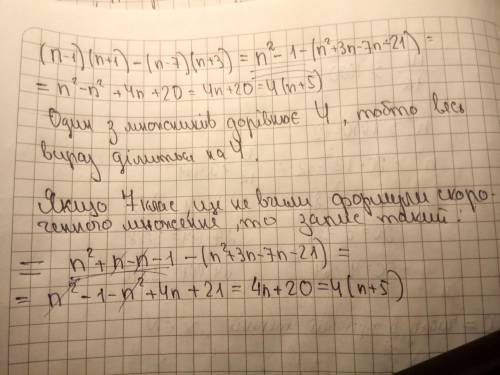 (n-1)(n+1)-(n-7)(n+3) = n²-1-(n²+3n-7n-21) =
= n²-n²+4n+20 = 4n+20 = 4(n+5)
Один з множників дорівнює 4, тобто весь
вираз ділиться на 4.
Якщо 7 клас ще не вчили формули скоро-
ченого множення, то запис такий:
= n²+n-n-1-(n²+3n-7n-21) =
= n²-1-n²+4n+21 = 4n+20 = 4(n+5)